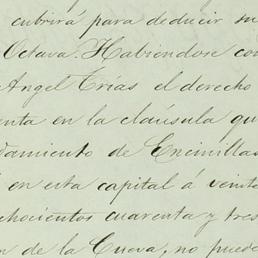 cubrirá para deducir su
Octava. Habiendose con
Angel Trías el derecho
enta en la cláusula qu
damiento de Encinillas
en esta capital á veinte
chocientos cuarenta y tres
n de la Cueva, no pueda